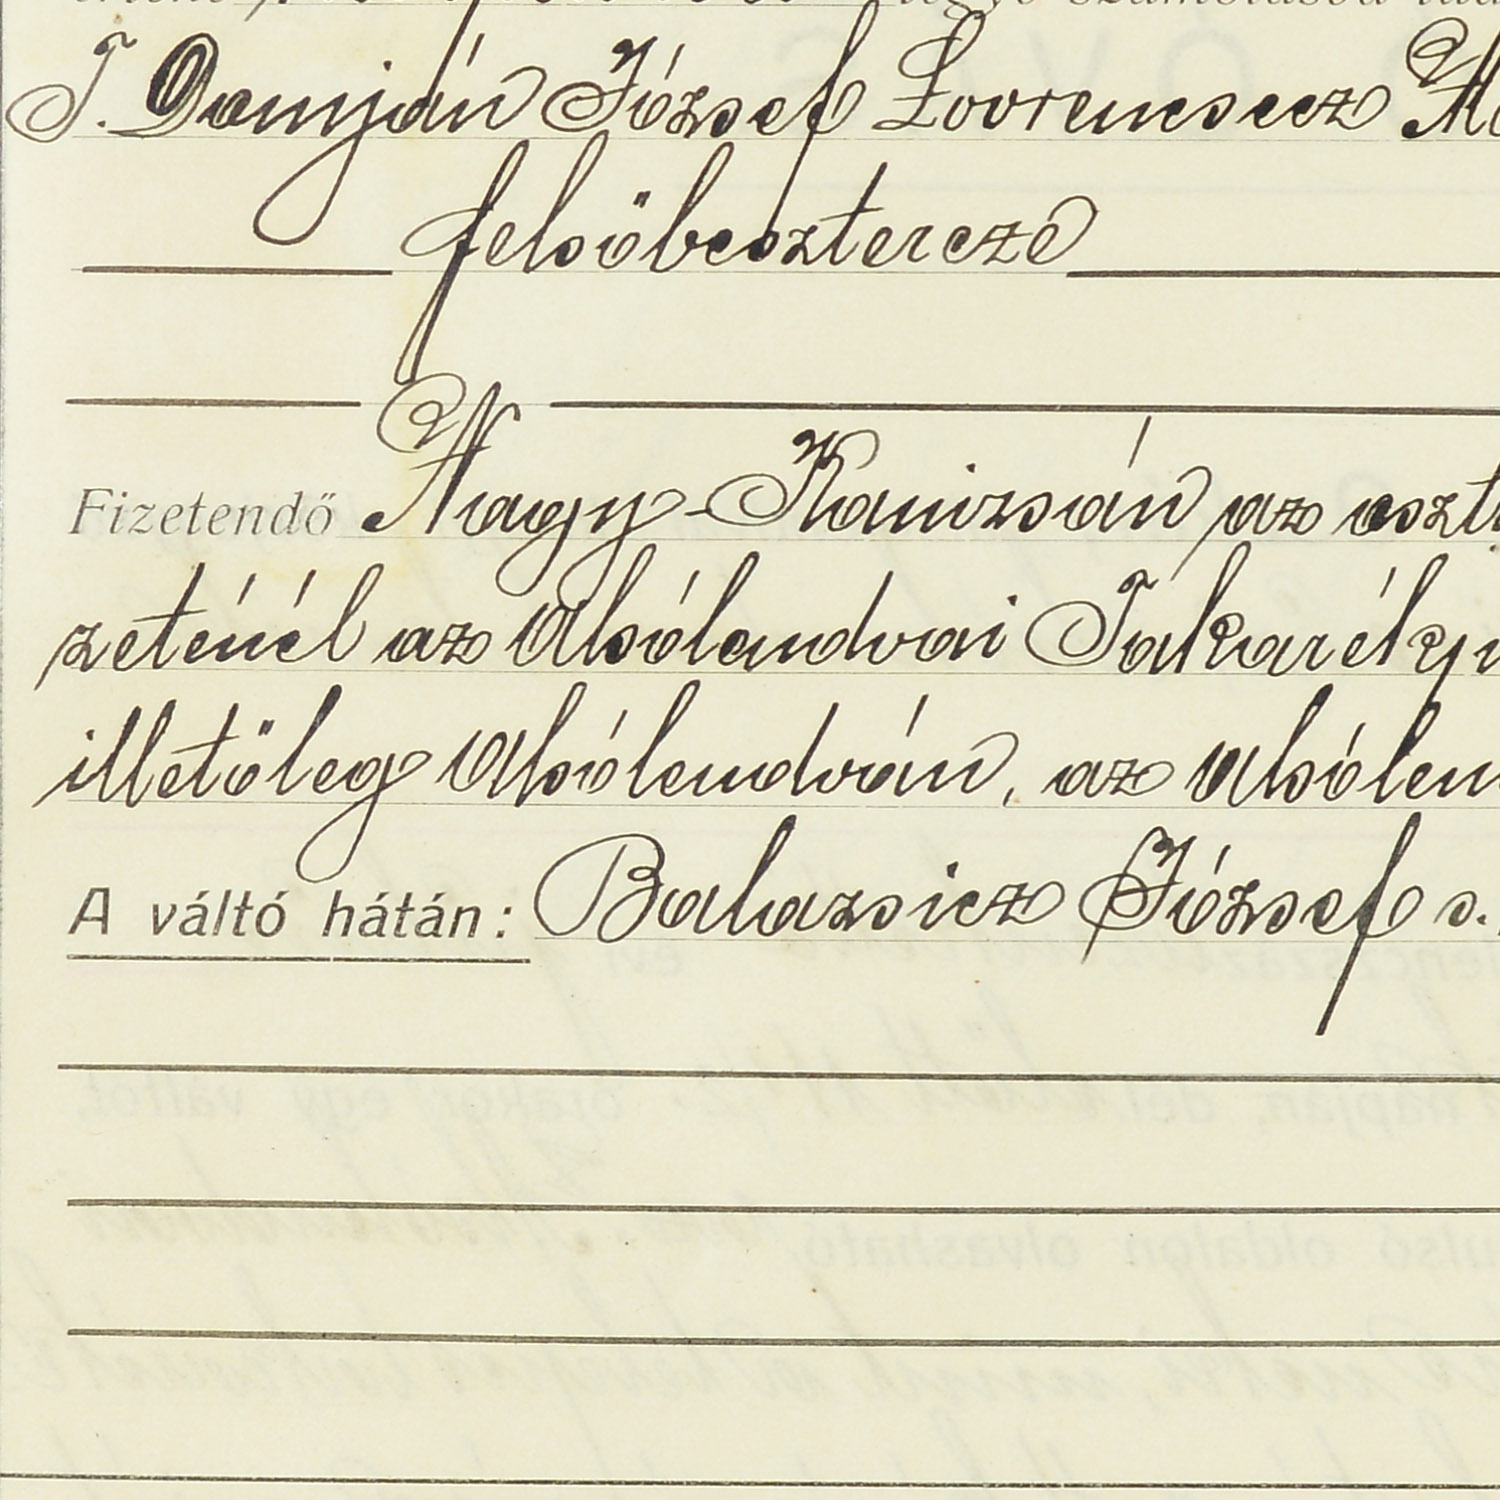 T. Damján József Lovrencsecz
felsőbeszterczé
Fizetendő Nagy-Kanizsán az oszt
zeténél az Alsólendvai Takarékp
illetőleg Alsólendván, az Alsólen
A váltó hátán: Balazsicz József s.